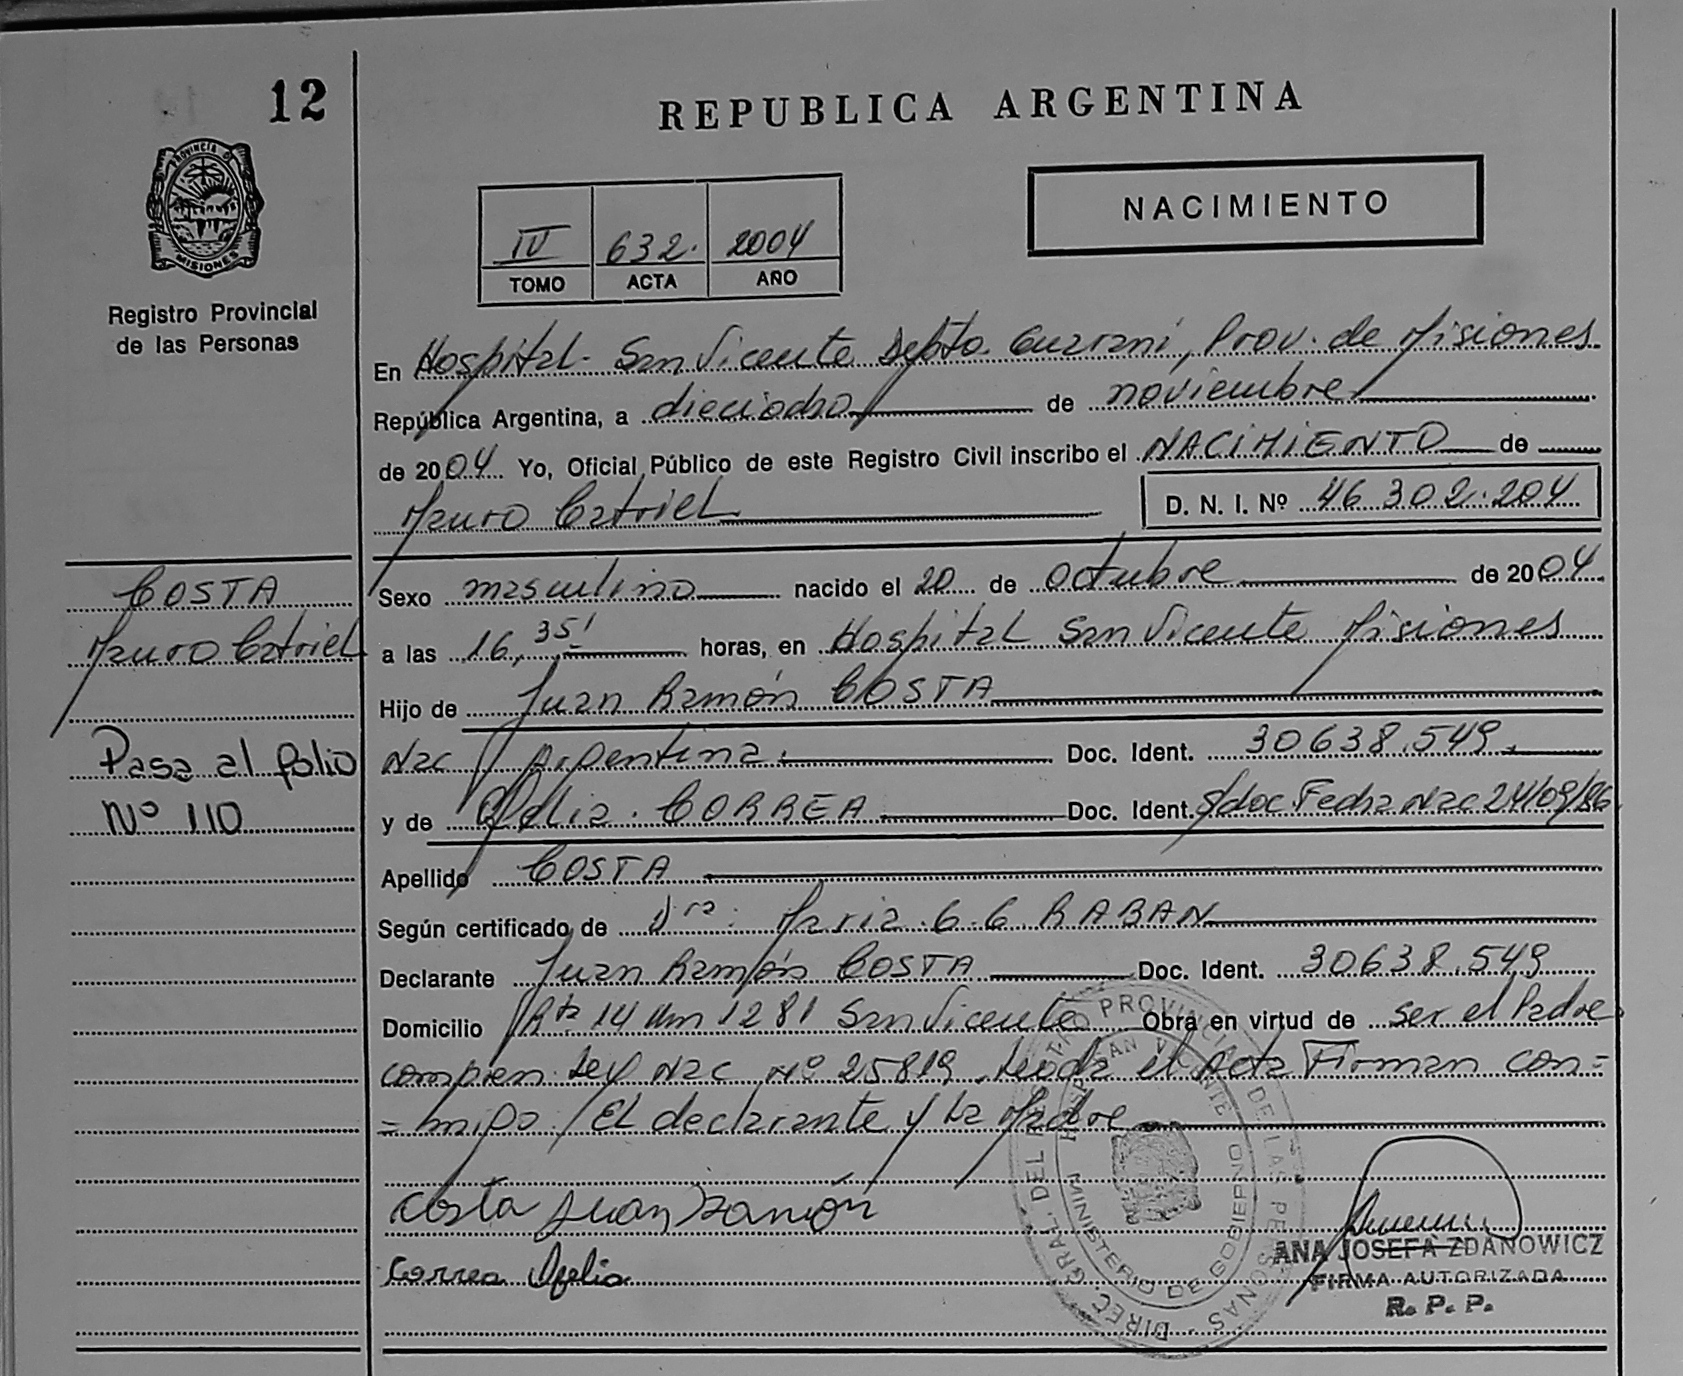 12
REPUBLICA ARGENTINA
PROVINCIA DE MISIONES
Registro Provincial
de las Personas
NACIMIENTO
IV 632. 2004
TOMO ACTA AÑO
En Hospital San Vicente Depto. Guarani, Prov. de Misiones
República Argentina, a dieciocho de noviembre
de 2004 Yo, Oficial Público de este Registro Civil inscribo el NACIMIENTO de
Mauro Catriel D. N. I. Nº 46.302.204
COSTA
Mauro Catriel
Pasa al folio
Nº 110
Sexo masculino nacido el 20 de octubre de 2004
a las 16,35' horas, en Hospital San Vicente Misiones
Hijo de Juan Ramón COSTA
Nac Argentina. Doc. Ident. 30638.549
y de Ofelia CORREA Doc. Ident. S/doc Fecha Nac 24/09/86
Apellido COSTA
Según certificado de Dra: Maria G. G. RABAN
Declarante Juan Ramón COSTA Doc. Ident. 30638.549
Domicilio Rta 14 Km 1281 San Vicente Obra en virtud de ser el Padre
Ley Nac Nº 25819 Leida el Acta Firman con=
=migo El declarante y la Madre
Costa Juan Ramón
Correa Ofelia
DIREC. GRAL. DEL REGISTRO PROVINCIAL DE LAS PERSONAS
SAN VICENTE
MINISTERIO DE GOBIERNO
ANA JOSEFA ZDANOWICZ
FIRMA AUTORIZADA
R. P. P.